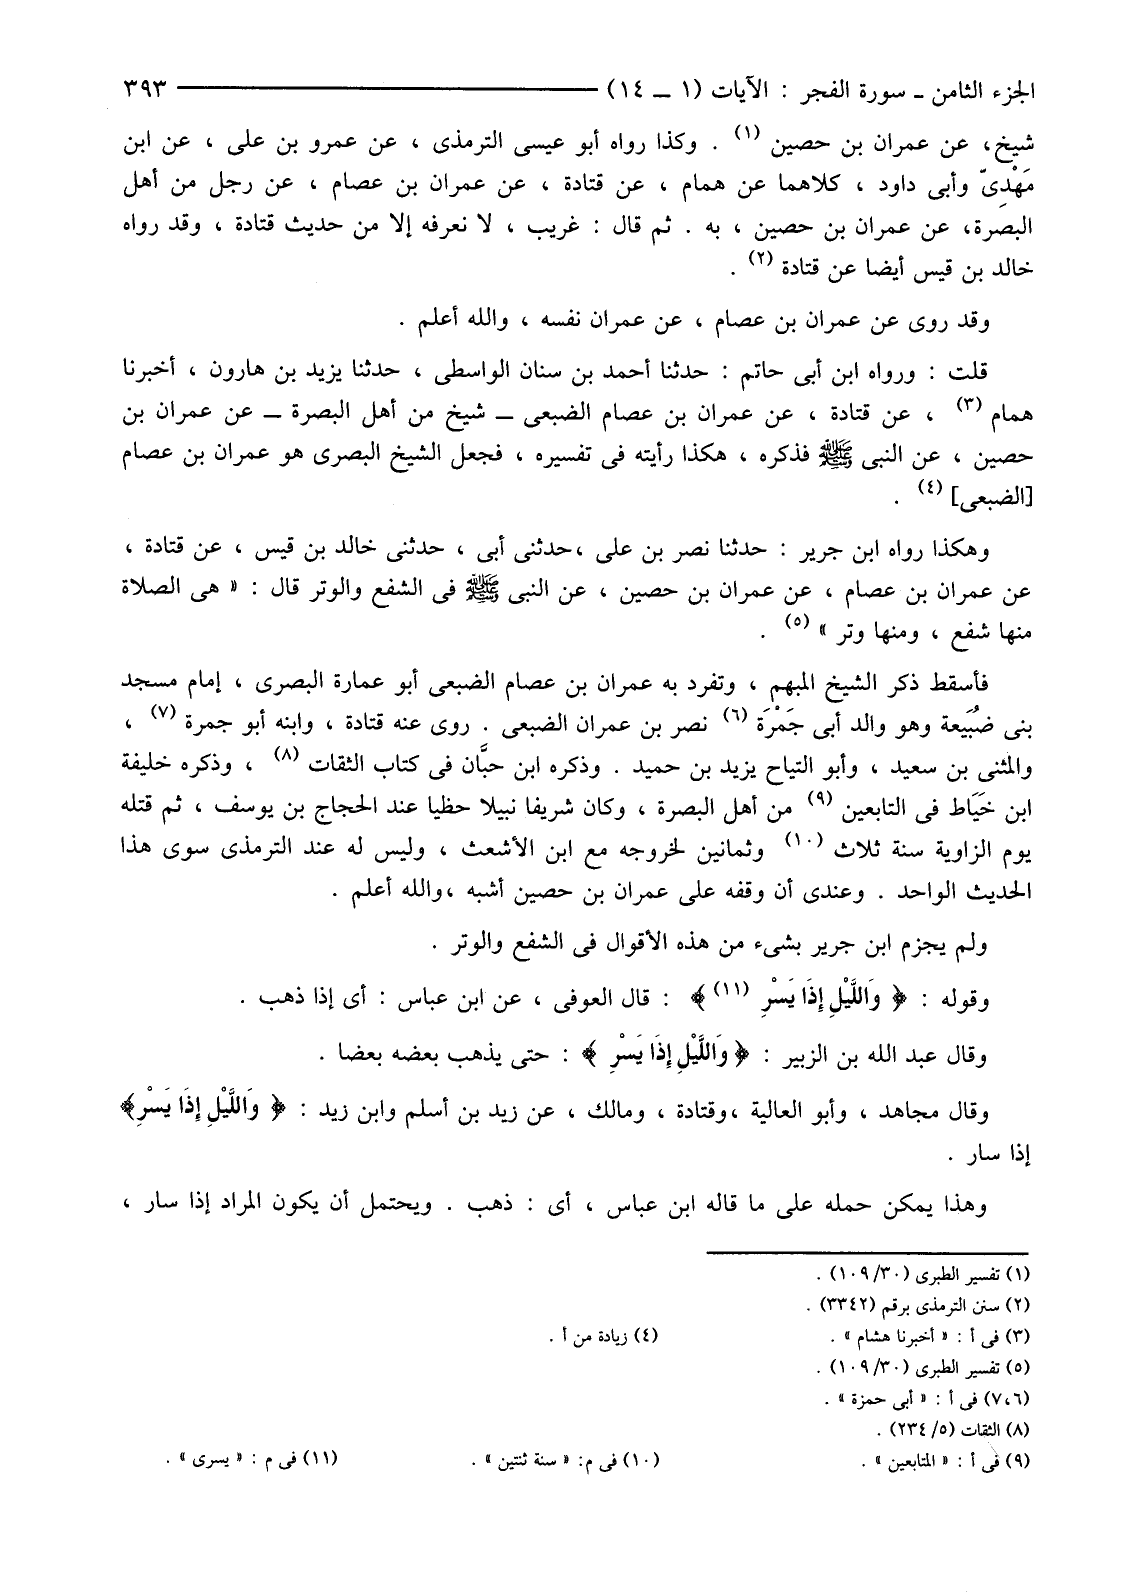 الجزء الثامن ـ سورة الفجر : الآيات (١ ـ ١٤) ٣٩٣
شيخ، عن عمران بن حصين (١) . وكذا رواه أبو عيسى الترمذى ، عن عمرو بن على ، عن ابن
مَهْدِىّ وأبى داود ، كلاهما عن همام ، عن قتادة ، عن عمران بن عصام ، عن رجل من أهل
البصرة، عن عمران بن حصين ، به . ثم قال : غريب ، لا نعرفه إلا من حديث قتادة ، وقد رواه
خالد بن قيس أيضا عن قتادة (٢) .
وقد روى عن عمران بن عصام ، عن عمران نفسه ، والله أعلم .
قلت : ورواه ابن أبى حاتم : حدثنا أحمد بن سنان الواسطى ، حدثنا يزيد بن هارون ، أخبرنا
همام (٣) ، عن قتادة ، عن عمران بن عصام الضبعى ـ شيخ من أهل البصرة ـ عن عمران بن
حصين ، عن النبى ﷺ فذكره ، هكذا رأيته فى تفسيره ، فجعل الشيخ البصرى هو عمران بن عصام
[الضبعى] (٤) .
وهكذا رواه ابن جرير : حدثنا نصر بن على ،حدثنى أبى ، حدثنى خالد بن قيس ، عن قتادة ،
عن عمران بن عصام ، عن عمران بن حصين ، عن النبى ﷺ فى الشفع والوتر قال : « هى الصلاة
منها شفع ، ومنها وتر » (٥) .
فأسقط ذكر الشيخ المبهم ، وتفرد به عمران بن عصام الضبعى أبو عمارة البصرى ، إمام مسجد
بنى ضُبَيعة وهو والد أبى جَمْرَة (٦) نصر بن عمران الضبعى . روى عنه قتادة ، وابنه أبو جمرة (٧) ،
والمثنى بن سعيد ، وأبو التياح يزيد بن حميد . وذكره ابن حبَّان فى كتاب الثقات (٨) ، وذكره خليفة
ابن خَيَاط فى التابعين (٩) من أهل البصرة ، وكان شريفا نبيلا حظيا عند الحجاج بن يوسف ، ثم قتله
يوم الزاوية سنة ثلاث (١٠) وثمانين لخروجه مع ابن الأشعث ، وليس له عند الترمذى سوى هذا
الحديث الواحد . وعندى أن وقفه على عمران بن حصين أشبه ،والله أعلم .
ولم يجزم ابن جرير بشىء من هذه الأقوال فى الشفع والوتر .
وقوله : ﴿ وَاللَّيْلِ إِذَا يَسْرِ (١١) ﴾ : قال العوفى ، عن ابن عباس : أى إذا ذهب .
وقال عبد الله بن الزبير : ﴿ وَاللَّيْلِ إِذَا يَسْرِ ﴾ : حتى يذهب بعضه بعضا .
وقال مجاهد ، وأبو العالية ،وقتادة ، ومالك ، عن زيد بن أسلم وابن زيد : ﴿ وَاللَّيْلِ إِذَا يَسْرِ﴾
إذا سار .
وهذا يمكن حمله على ما قاله ابن عباس ، أى : ذهب . ويحتمل أن يكون المراد إذا سار ،
(١) تفسير الطبرى (٣٠/ ١٠٩) .
(٢) سنن الترمذى برقم (٣٣٤٢) .
(٣) فى أ : « أخبرنا هشام » . (٤) زيادة من أ .
(٥) تفسير الطبرى (٣٠/ ١٠٩) .
(٦،٧) فى أ : « أبى حمزة » .
(٨) الثقات (٥/ ٢٣٤) .
(٩) فى أ : « المتابعين » . (١٠) فى م: « سنة ثنتين » . (١١) فى م : « يسرى » .